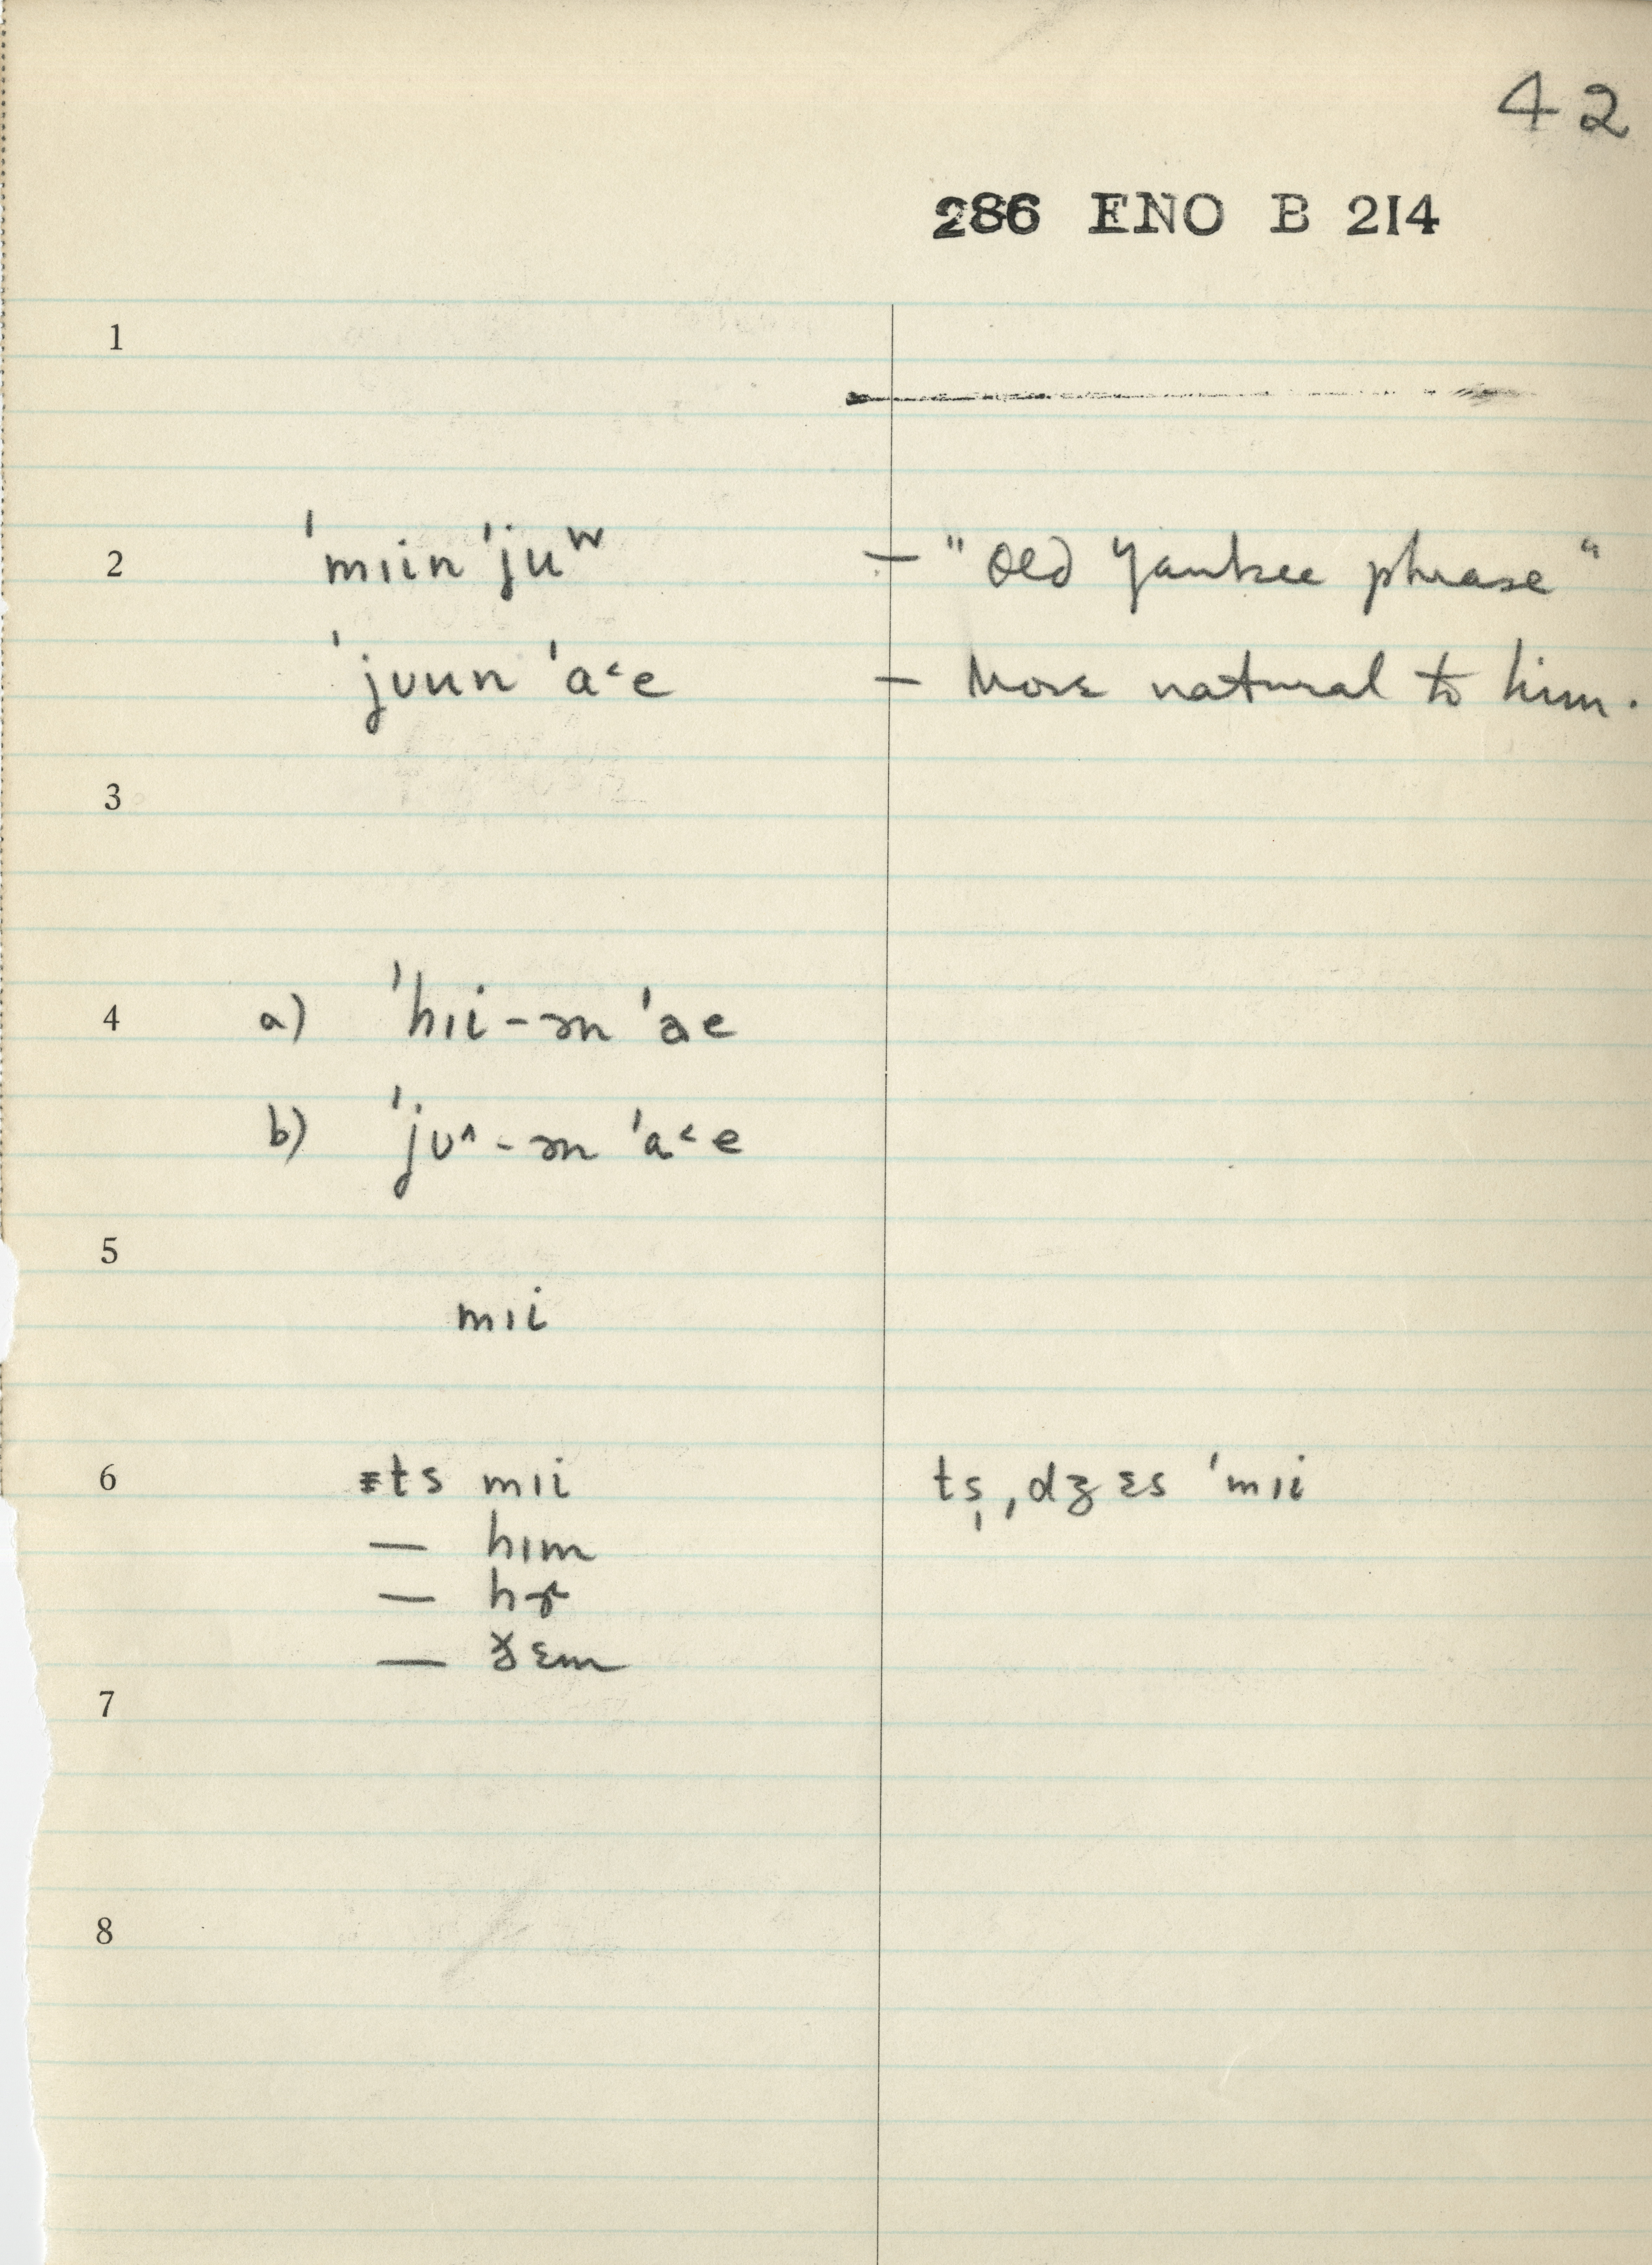 42
286 ENO B 214
1
2 ˈmɪin ˈjuʷ — "Old Yankee phrase"
ˈjʊun ˈa˂e — More natural to him.
3
4 a) ˈhɪi-ən ˈae
b) ˈjʊ^-ən ˈa˂e
5
mɪi
6 ɪts mɪi tṣ, dʒɛs ˈmɪi
— hɪm
— hɚ
— ðɛm
7
8